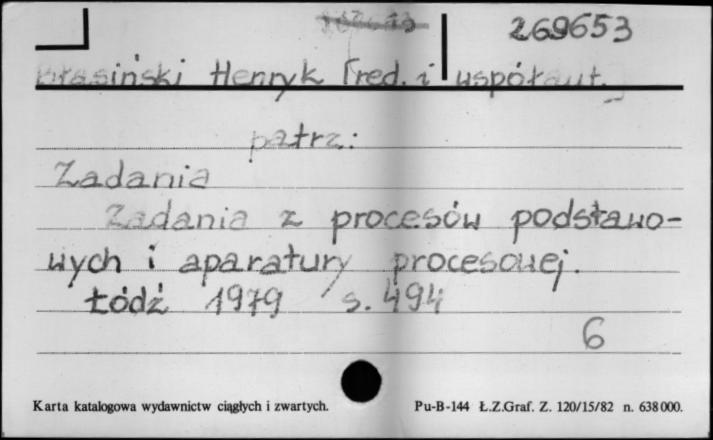 269653
Błasiński Henryk [red. i współaut.]
patrz:
Zadania
Zadania z procesów podstawo-
wych i aparatury procesowej.
Łódź 1979 s. 494
6
Karta katalogowa wydawnictw ciągłych i zwartych.
Pu-B-144 Ł.Z.Graf. Z. 120/15/82 n. 638000.